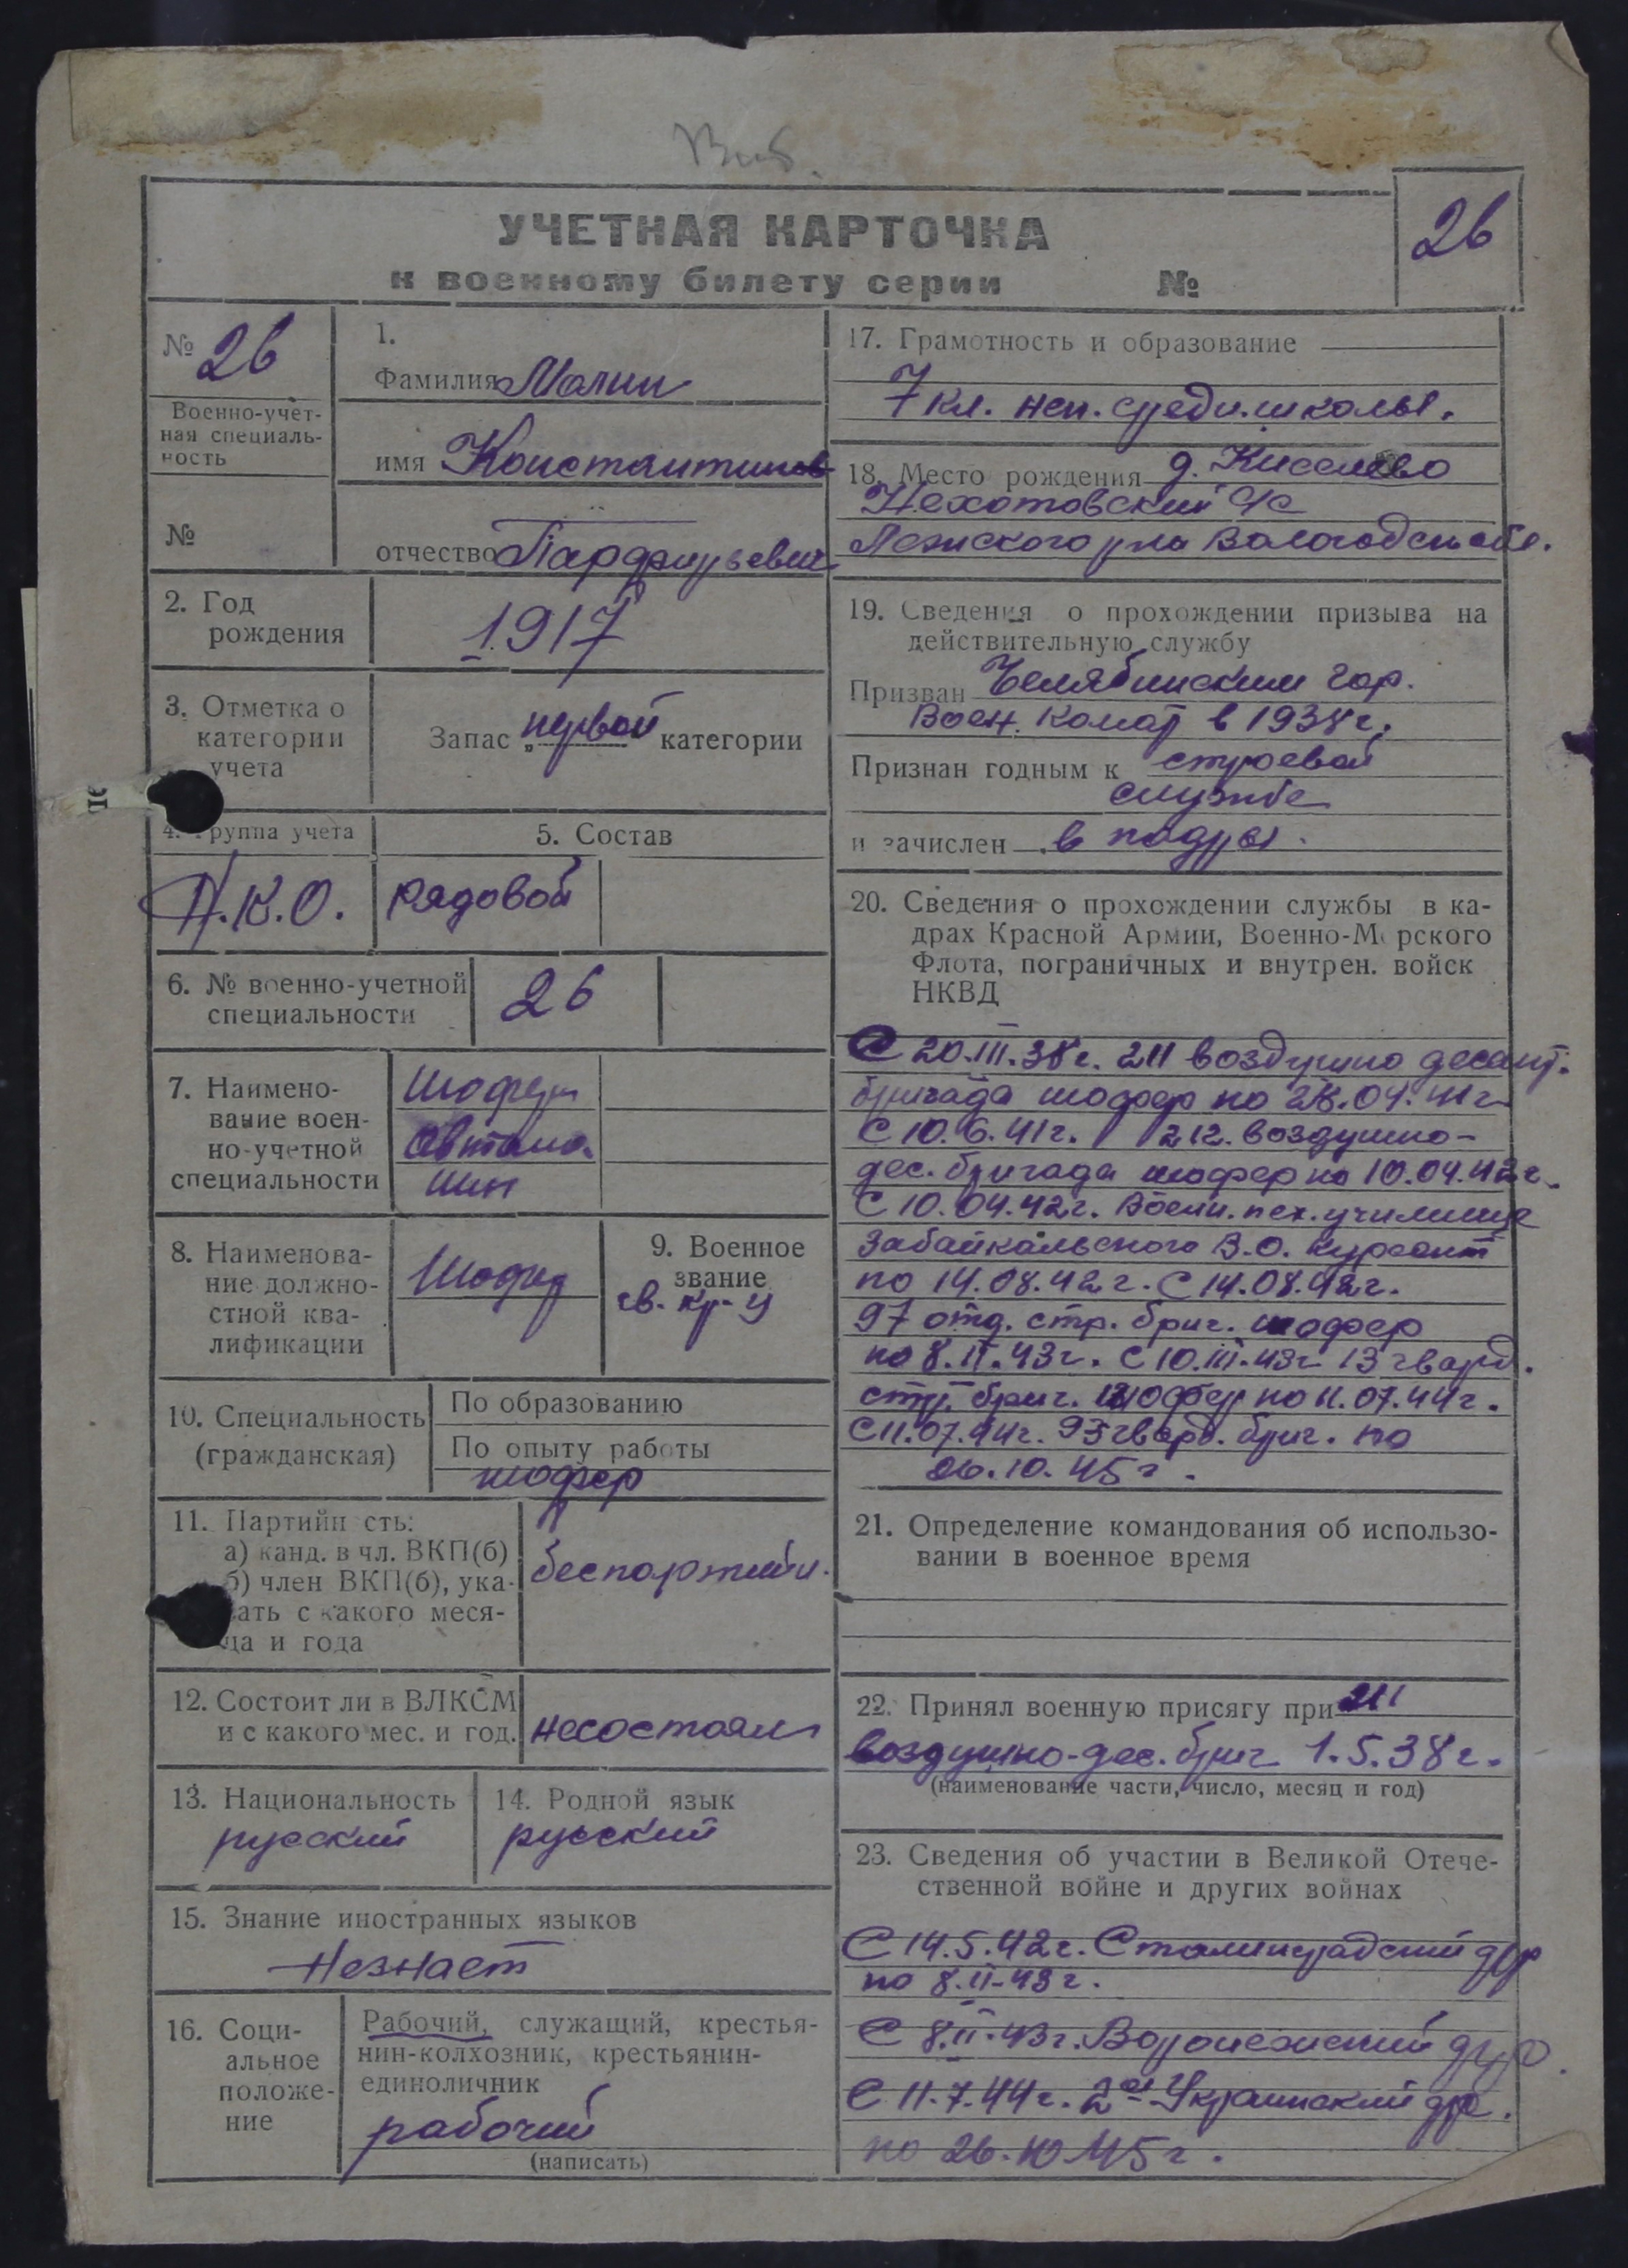 УЧЕТНАЯ КАРТОЧКА
к военному билету серии №
26
№ 26
Военно-учет-
ная специаль-
ность
№
1.
Фамилия Малин
имя Константинов
отчество Парфирьевич
2. Год
рождения
1917
3. Отметка о
категории
учета
Запас „первой" категории
4. Группа учета
Н.К.О.
5. Состав
рядовой
6. № военно-учетной
специальности
26
7. Наимено-
вание воен-
но-учетной
специальности
Шофер
автома-
шин
8. Наименова-
ние должно-
стной ква-
лификации
Шофер
9. Военное
звание
гв. кр-ц
10. Специальность
(гражданская)
По образованию
По опыту работы
шофер
11. Партийн сть:
а) канд. в чл. ВКП(б)
б) член ВКП(б), ука-
ать с какого меся-
ца и года
беспартийн.
12. Состоит ли в ВЛКСМ
и с какого мес. и год.
несостоял
13. Национальность
русский
14. Родной язык
русский
15. Знание иностранных языков
Незнает
16. Соци-
альное
положе-
ние
Рабочий, служащий, крестья-
нин-колхозник, крестьянин-
единоличник
рабочий
(написать)
17. Грамотность и образование
7 кл. неп. средн. школы.
18. Место рождения д. Киселево
Нехотовский с/с
Лежского р-на Вологодск обл.
19. Сведения о прохождении призыва на
действительную службу
Призван Челябинским гор.
Воен. комат в 1938 г.
Признан годным к строевой
службе
и зачислен в
20. Сведения о прохождении службы в ка-
драх Красной Армии, Военно-М рского
Флота, пограничных и внутрен. войск
НКВД
С 20.III.38г. 211 воздушно десант.
бригада шофер по 28.04.41г.
С 10.6.41г. 212. воздушно-
дес. бригада шофер по 10.04.42г.
С 10.04.42г. Воен. пех. училище
Забайкальского В.О. курсант
по 14.08.42г. С 14.08.42г.
97 отд. стр. бриг. шофер
по 8.II.43г. С 10.III.43г 13 гвард.
стр. бриг. шофер по 11.07.44г.
С 11.07.44г. 93 гвард. бриг. по
26.10.45г.
21. Определение командования об использо-
вании в военное время
22. Принял военную присягу при 211
воздушно-дес. бриг 1.5.38г.
(наименование части, число, месяц и год)
23. Сведения об участии в Великой Отече-
ственной войне и других войнах
С 14.5.42г. Сталинградский фр
по 8.II-43г.
С 8.II.43г. Воронежский фр.
С 11.7.44г. 2ой Украинский фр.
по 26.10.45г.